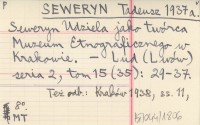 P SEWERYN Tadeusz 1937 a.
Seweryn Udziela jako twórca
Muzeum Etnograficznego w
Krakowie. – Lud (Lwów)
seria 2, tom 15 (35): 29-37.
Też odb.: Kraków 1938, ss. 11,
8º.
MT